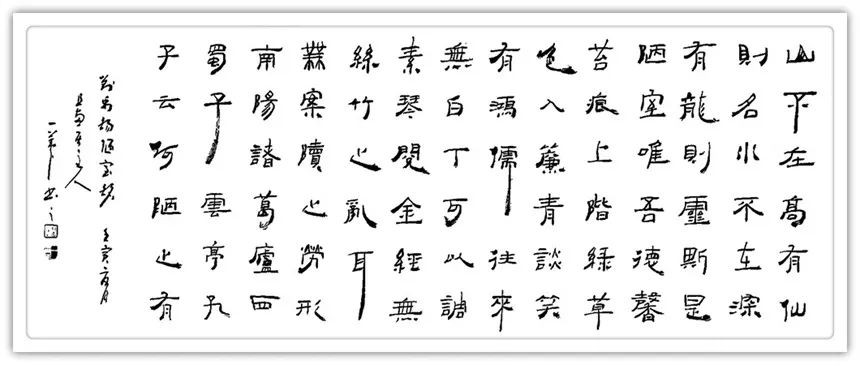 山不在高有仙
則名水不在深
有龍則靈斯是
陋室唯吾德馨
苔痕上階綠草
色入簾青談笑
有鴻儒往來
無白丁可以調
素琴閱金經無
絲竹之亂耳
無案牘之勞形
南陽諸葛廬西
蜀子雲亭孔
子云何陋之有
劉禹錫陋室銘 壬寅夏月